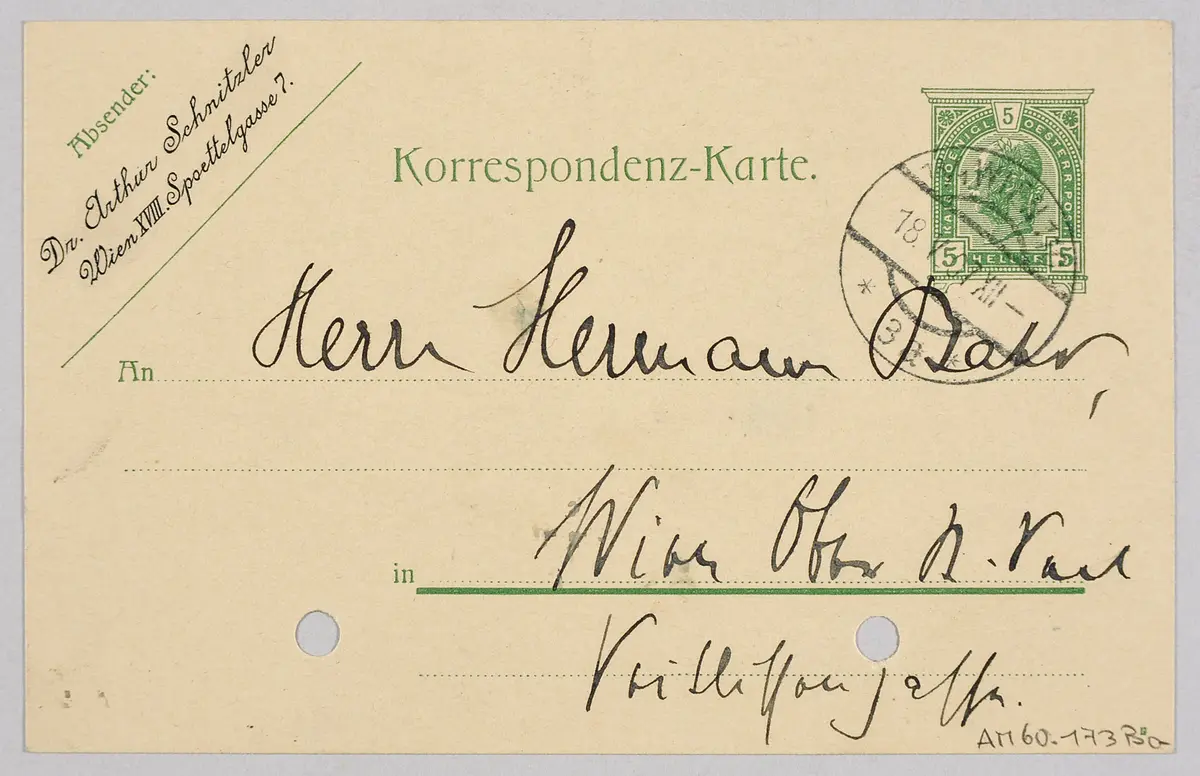 Absender:
Dr. Arthur Schnitzler
Wien XVIII. Spoettelgasse 7.
Korrespondenz-Karte.
5
KAIS. KOENIGL. OESTERR. POST
5 HELLER 5
WIEN
18. XII
* 3a *
An Herrn Hermann Bahr,
in Wien Ober St. Veit
Veitlissengasse.
AM60.173Ba